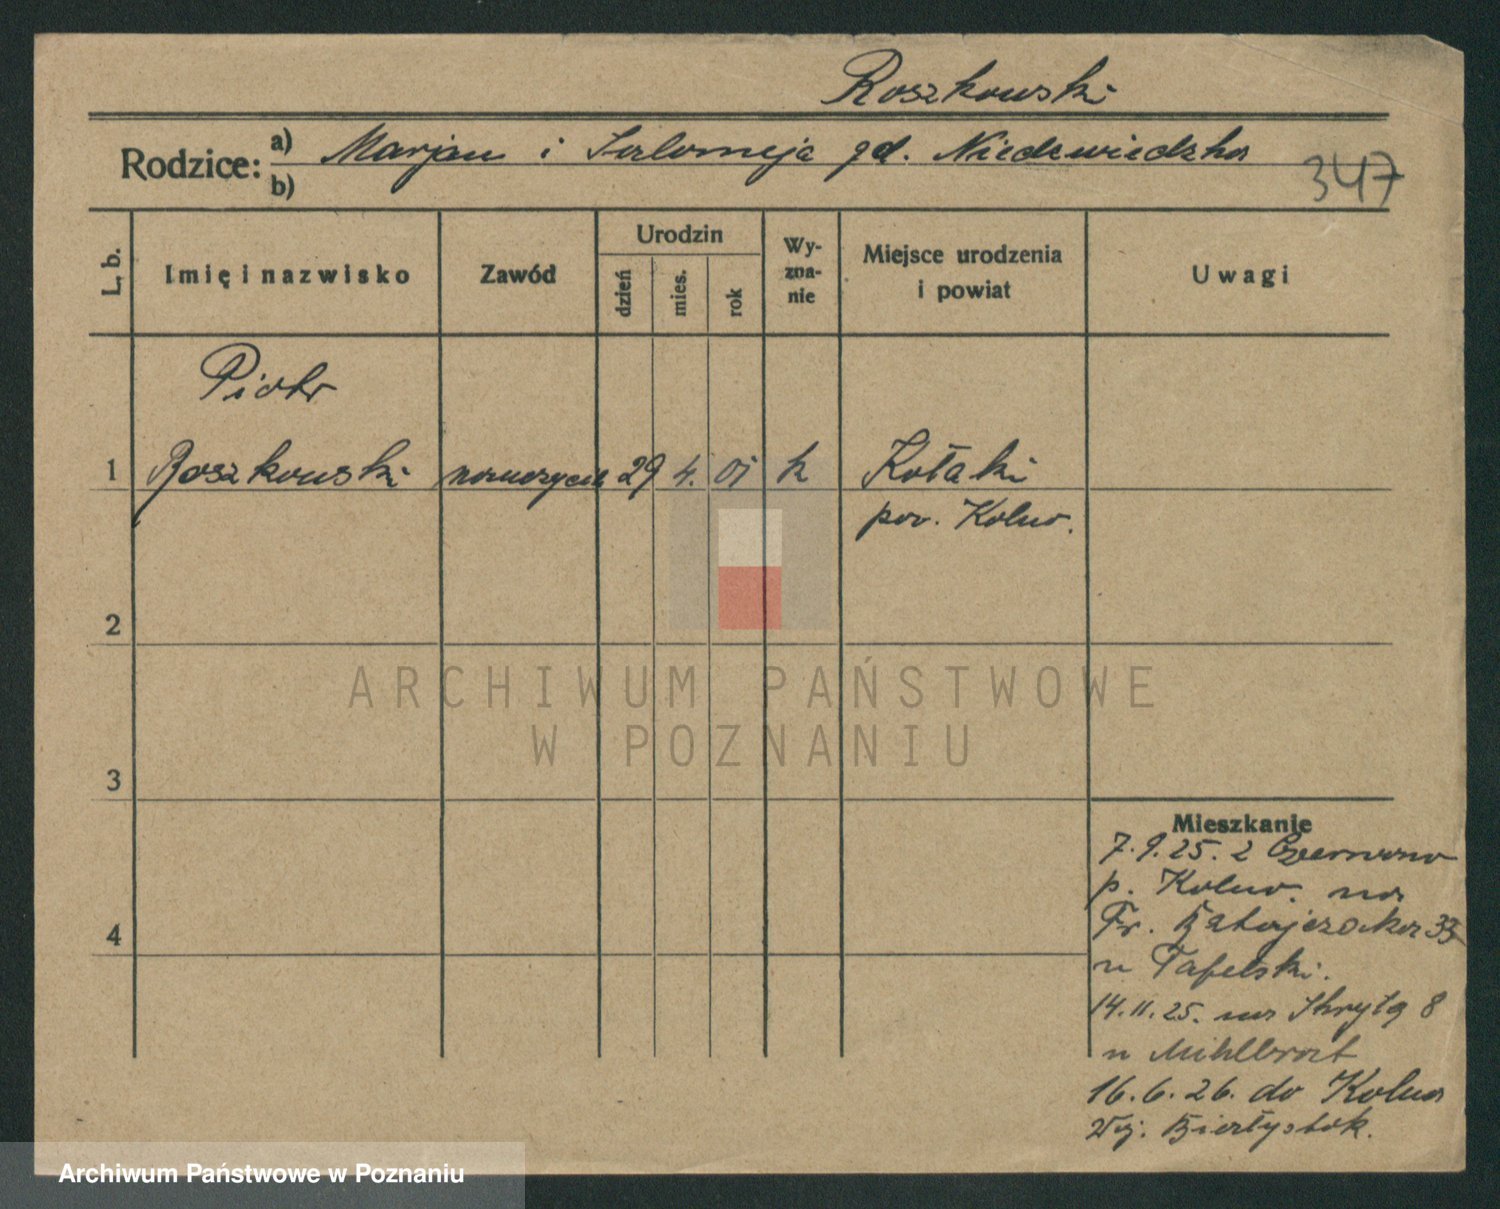 Roszkowski
Rodzice: a) Marjan i Salomeja zd. Niedzwiedzka
b)
347
L. b.
Imię i nazwisko
Zawód
Urodzin
dzień
mies.
rok
Wy-
zna-
nie
Miejsce urodzenia
i powiat
Uwagi
Piotr
1 Roszkowski nauczyciel 29 4. 01 k Kołaki
pow. Kolno.
2
ARCHIWUM PAŃSTWOWE
W POZNANIU
3
Mieszkanie
7.9.25. z Czerwono
p. Kolno. na
4
Fr. Ratajczaka 33
u Tafelski.
14.11.25. na Skrytą 8
u Mihlbrat
16.6.26. do Kolna
Woj. Białystok.
Archiwum Państwowe w Poznaniu